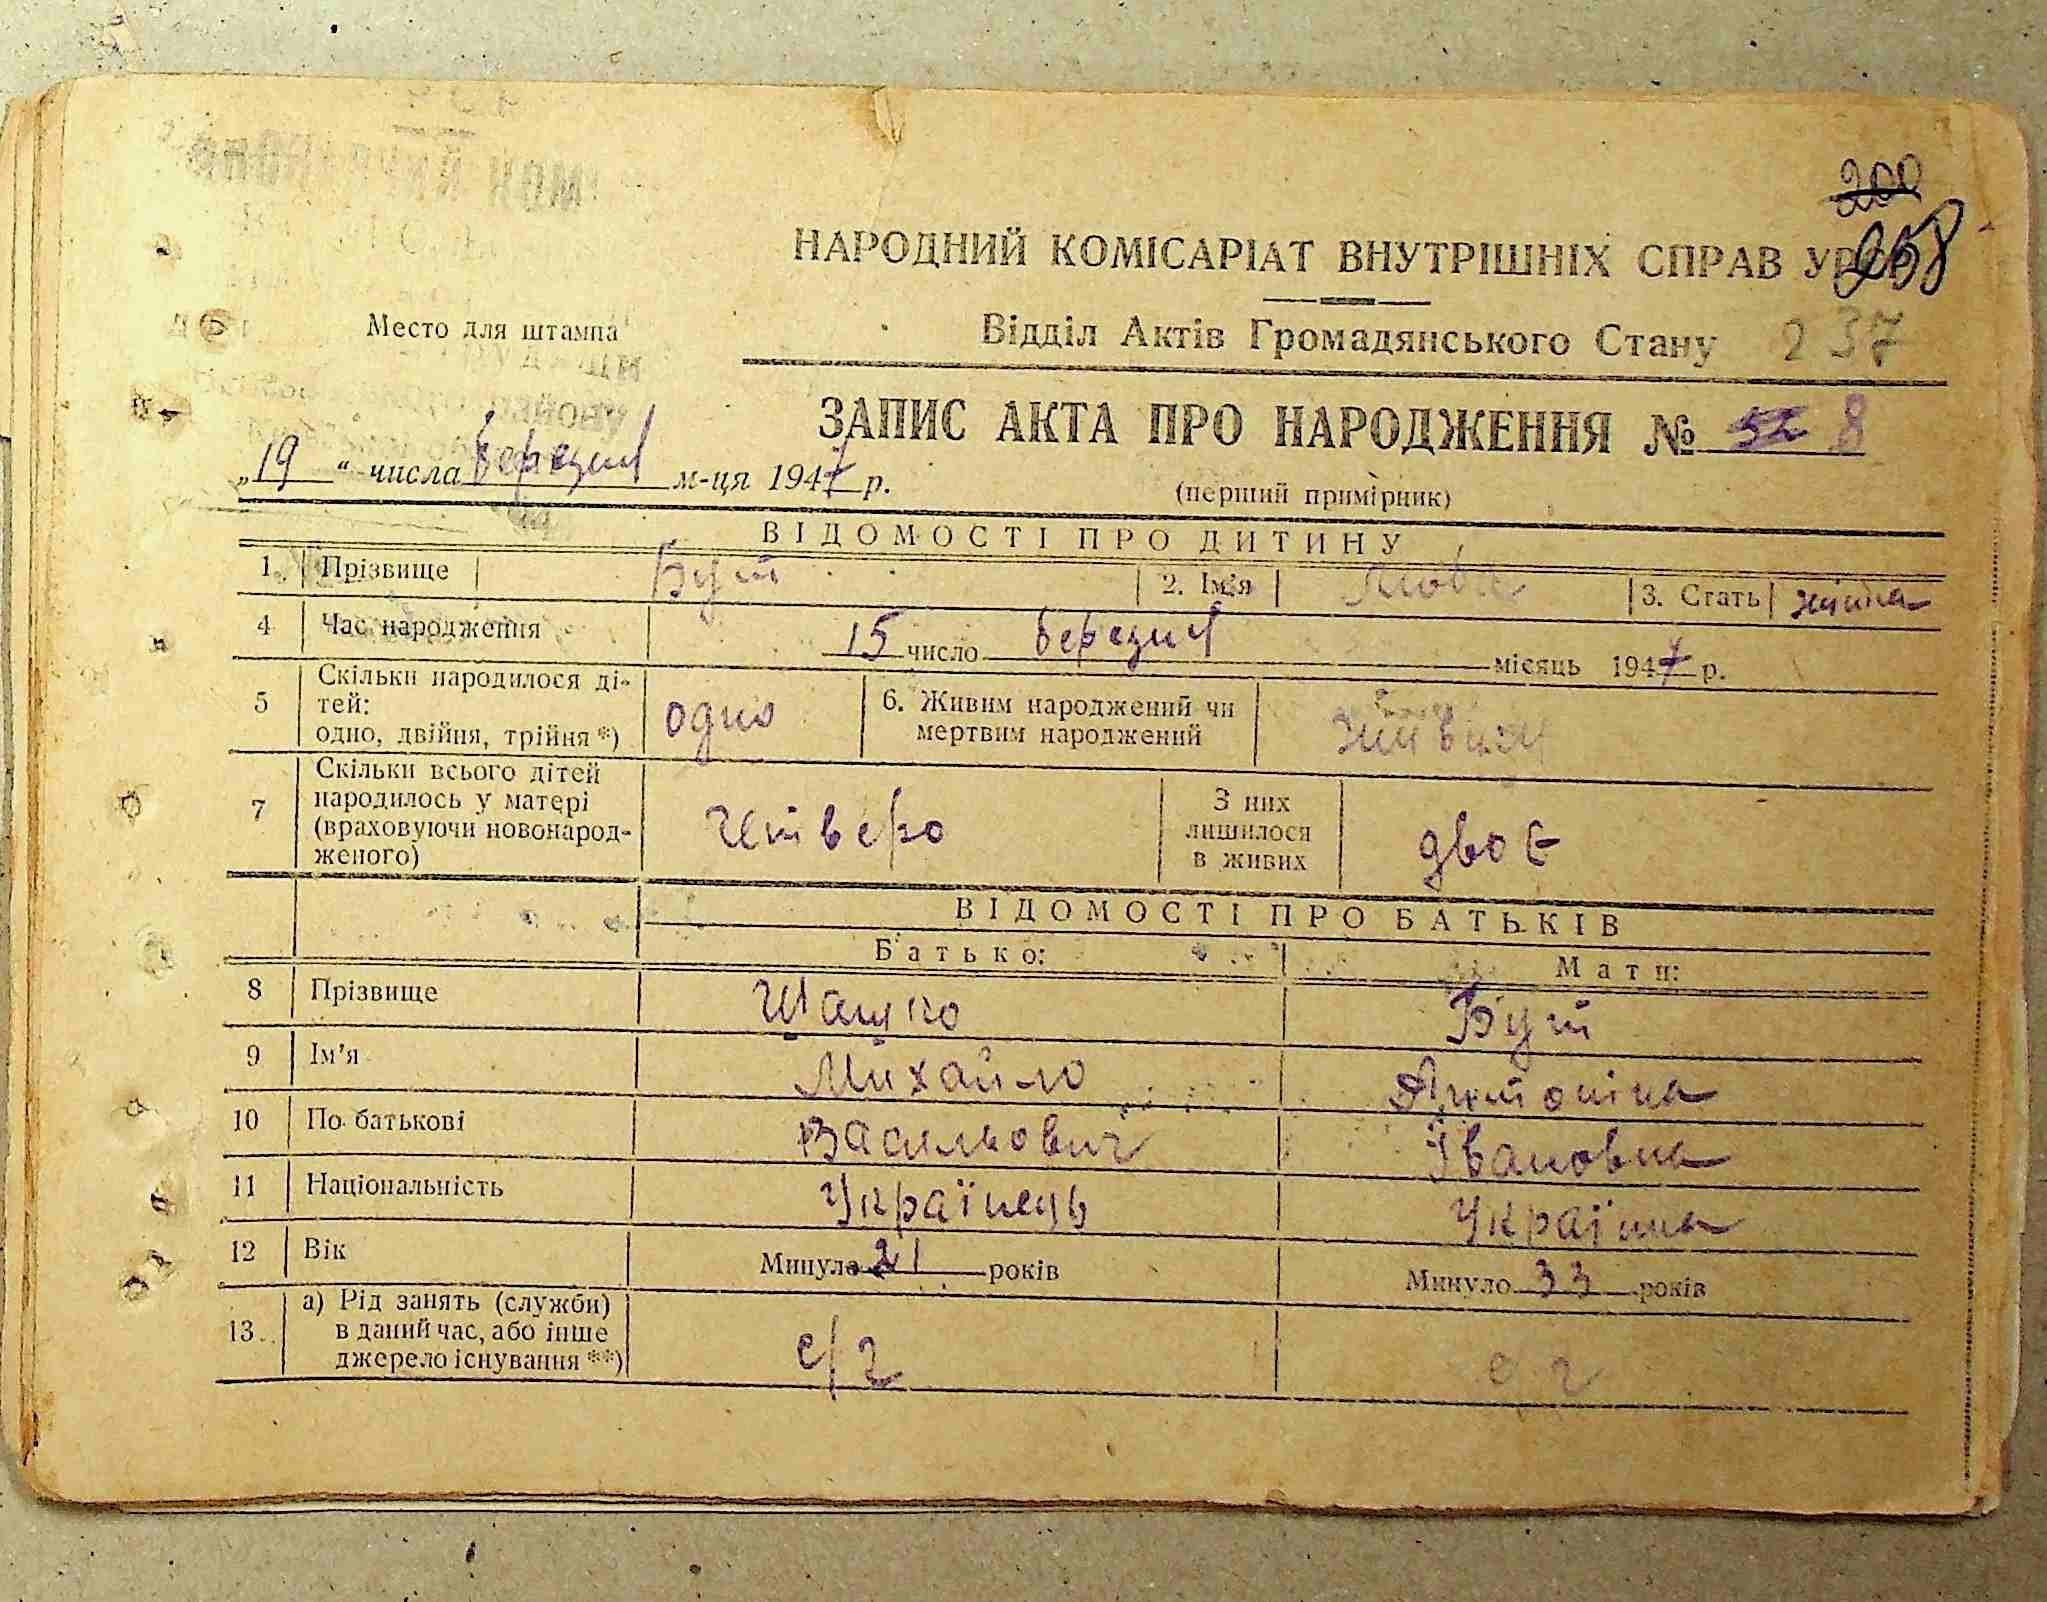 200
258
НАРОДНИЙ КОМІСАРІАТ ВНУТРІШНІХ СПРАВ УРСР
Место для штампа
Відділ Актів Громадянського Стану 237
ЗАПИС АКТА ПРО НАРОДЖЕННЯ № 52 8
„19“ числа березня м-ця 1947 р.
(перший примірник)
ВІДОМОСТІ ПРО ДИТИНУ
1. Прізвище Бут 2. Ім'я Люба 3. Стать жінка
4 Час народження 15 число березня місяць 1947 р.
5 Скільки народилося ді-
тей:
одно, двійня, трійня *) одно 6. Живим народжений чи
мертвим народжений живим
7 Скільки всього дітей
народилось у матері
(враховуючи новонарод-
женого) четверо З них
лишилося
в живих двоє
ВІДОМОСТІ ПРО БАТЬКІВ
Батько: Мати:
8 Прізвище Шашко Бут
9 Ім'я Михайло Антоніна
10 По батькові Васильович Івановна
11 Національність Українець Українка
12 Вік Минуло 21 років Минуло 33 років
13. а) Рід занять (служби)
в даний час, або інше
джерело існування **) с/г с/г